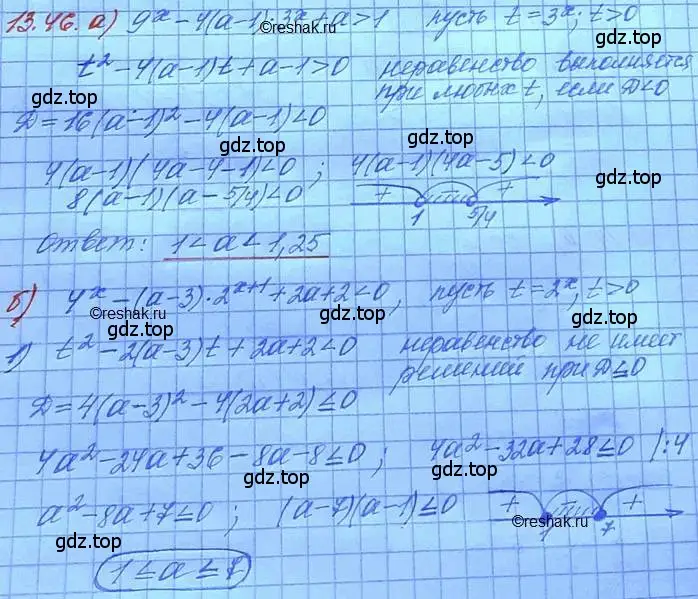 13.46. а) 9ˣ - 4(a-1)·3ˣ + a > 1 пусть t = 3ˣ; t > 0
t² - 4(a-1)t + a - 1 > 0 неравенство выполняется
при любых t, если D < 0
D = 16(a-1)² - 4(a-1) < 0
4(a-1)(4a-4-1) < 0 ; 4(a-1)(4a-5) < 0
8(a-1)(a-5/4) < 0 + - + 1 5/4
Ответ: 1 < a < 1,25
б) 4ˣ - (a-3)·2ˣ⁺¹ + 2a + 2 < 0, пусть t = 2ˣ, t > 0
1) t² - 2(a-3)t + 2a + 2 < 0 неравенство не имеет
решений при D ≤ 0
D = 4(a-3)² - 4(2a+2) ≤ 0
4a² - 24a + 36 - 8a - 8 ≤ 0 ; 4a² - 32a + 28 ≤ 0 |:4
a² - 8a + 7 ≤ 0 ; (a-7)(a-1) ≤ 0 + - + 1 7
1 ≤ a ≤ 7
©reshak.ru
gdz.top
gdz.top
gdz.top
gdz.top
gdz.top
gdz.top
©reshak.ru
gdz.top
gdz.top
gdz.top
gdz.top
©reshak.ru
gdz.top
gdz.top